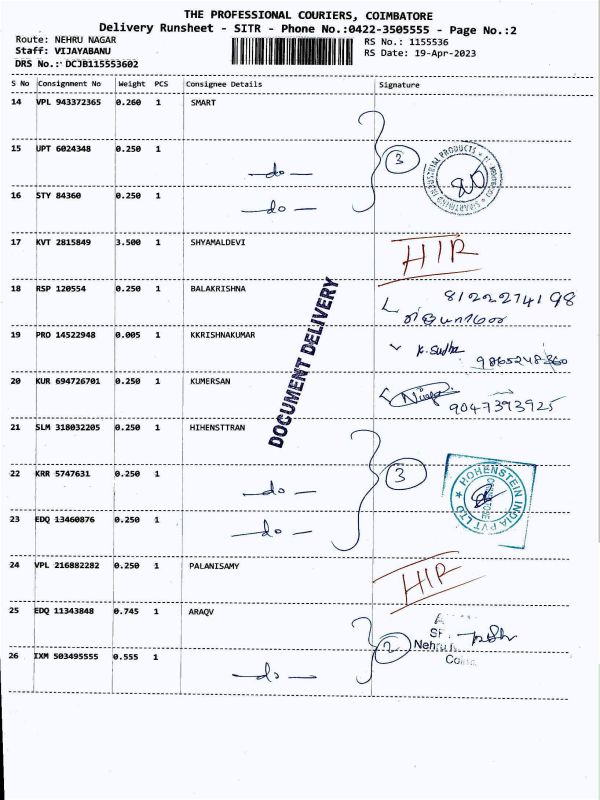 THE PROFESSIONAL COURIERS, COIMBATORE
Delivery Runsheet - SITR - Phone No.:0422-3505555 - Page No.:2
Route: NEHRU NAGAR RS No.: 1155536
Staff: VIJAYABANU RS Date: 19-Apr-2023
DRS No.: DCJB115553602
S No Consignment No Weight PCS Consignee Details Signature
14 VPL 943372365 0.260 1 SMART
15 UPT 6024348 0.250 1 -do- 3
16 STY 84360 0.250 1 -do-
17 KVT 2815849 3.500 1 SHYAMALDEVI HIR
18 RSP 120554 0.250 1 BALAKRISHNA 8122274198
19 PRO 14522948 0.005 1 KKRISHNAKUMAR K. Sudha 9865248360
20 KUR 694726701 0.250 1 KUMERSAN 9047393925
DOCUMENT DELIVERY
21 SLM 318032205 0.250 1 HIHENSTTRAN
22 KRR 5747631 0.250 1 -do- 3
HOHENSTEIN INDIA PVT LTD
23 EDQ 13460876 0.250 1 -do-
24 VPL 216882282 0.250 1 PALANISAMY HIR
25 EDQ 11343848 0.745 1 ARAQV
Nehru
26 IXM 503495555 0.555 1 -do- 2